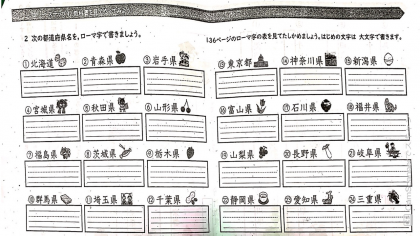 2 次の都道府県名を、ローマ字で書きましょう。
136ページのローマ字の表を見てたしかめましょう。はじめの文字は 大文字で書きます。
①北海道 ②青森県 ③岩手県
④宮城県 ⑤秋田県 ⑥山形県
⑦福島県 ⑧茨城県 ⑨栃木県
⑩群馬県 ⑪埼玉県 ⑫千葉県
⑬東京都 ⑭神奈川県 ⑮新潟県
⑯富山県 ⑰石川県 ⑱福井県
⑲山梨県 ⑳長野県 ㉑岐阜県
㉒静岡県 ㉓愛知県 ㉔三重県